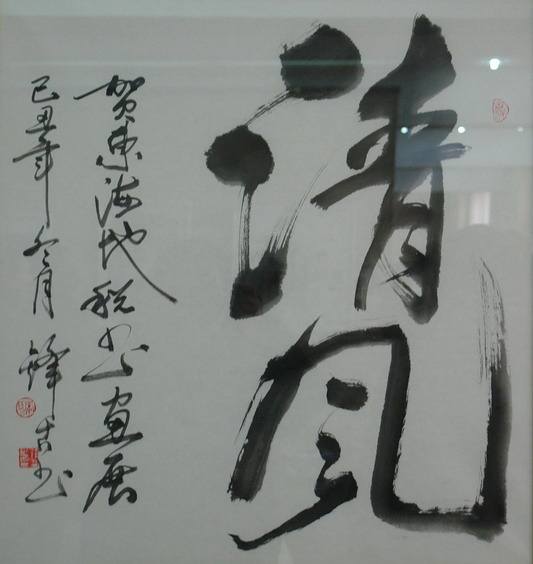 清风
贺东海地税书画展
己丑年冬月锋古书